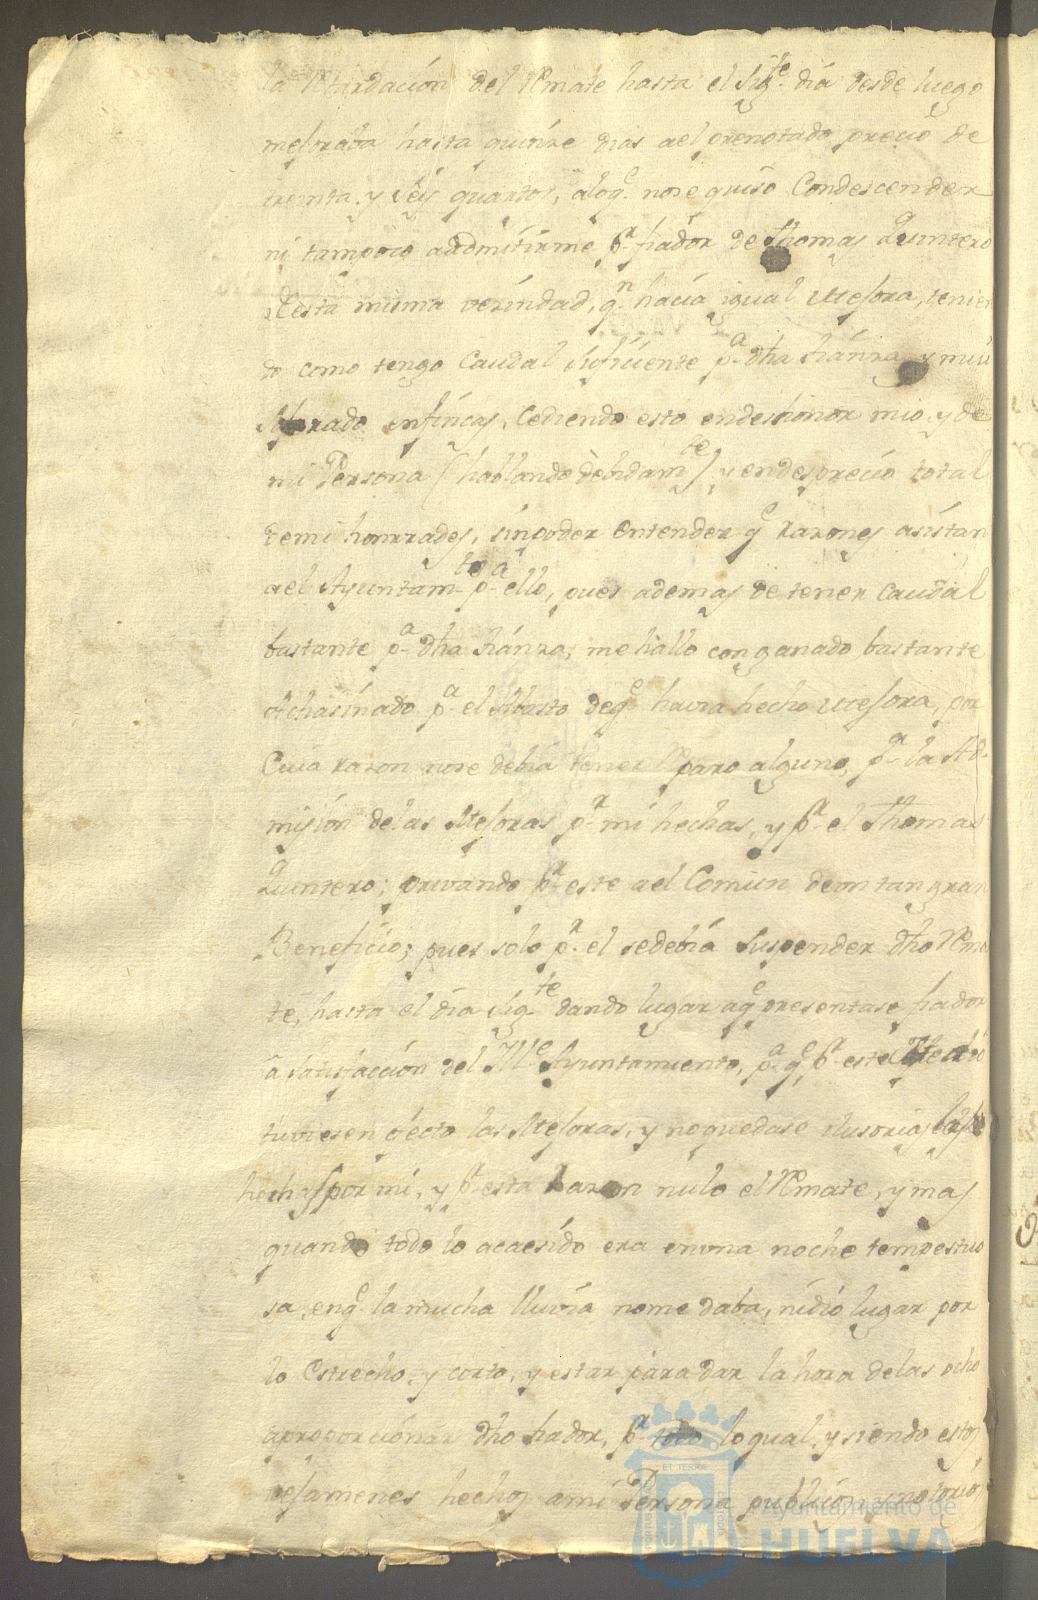 la Retardación del Remate hasta el sigte. diá desde luego
mejoraba hasta quinze dias ael prenotado precio de
treinta y séis quartos, aloqe. nose quiso Condescender
ni tampoco addmitirme pr. fiador de Thomas Quintero
desta misma vezindad, qn. hacia igual Mejora, tenien
do como tengo Caudal suficiente pa. dha fiánza, y mui
enfincas, Cediendo esto endeshonor mio, y de
mi Persona (hablando debidamte.) y endesprecio total
demi honrrades, sinpoder entender qe. razones asistan
ael Ayuntamto. pa. ello, pues ademas de tener Caudál
bastante pa. dha fiánza, me hallo conganado bastante
Achasinado pa. el Abasto deqe. havia hecho Mejora, por
Cuia razon nose debia tener Reparo alguno, pa. la Ad-
misión delas Mejoras pr. mi hechas, y pr. el Thomas
Quintero; privando pr. este ael Comun deun tan gran
Beneficio; pues solo pr. el sedebía Suspender dho Rema
te, hasta el dia sigte. dando lugar aqe. presentase fiador
â satisfacción del Ille. Ayuntamiento, pa. qe. pr. este Medio
tuviesen efecto las Mejoras, y noquedase ilusorias las
hechas por mi, y pr. esta Razon nulo el Remate, y mas
quando todo lo acaesido era enuna noche tempestuo
sa, enqe. la mucha lluvia nome daba, nidió lugar por
lo Estrecho, y corto, y estar para dar la hora delas ocho
aproporcionar dho fiador, pr. todo loqual, y siendo estos
vejamenes hechos ami Persona publicos, y notorios
ET TERRAE
Ayuntamiento de
HUELVA